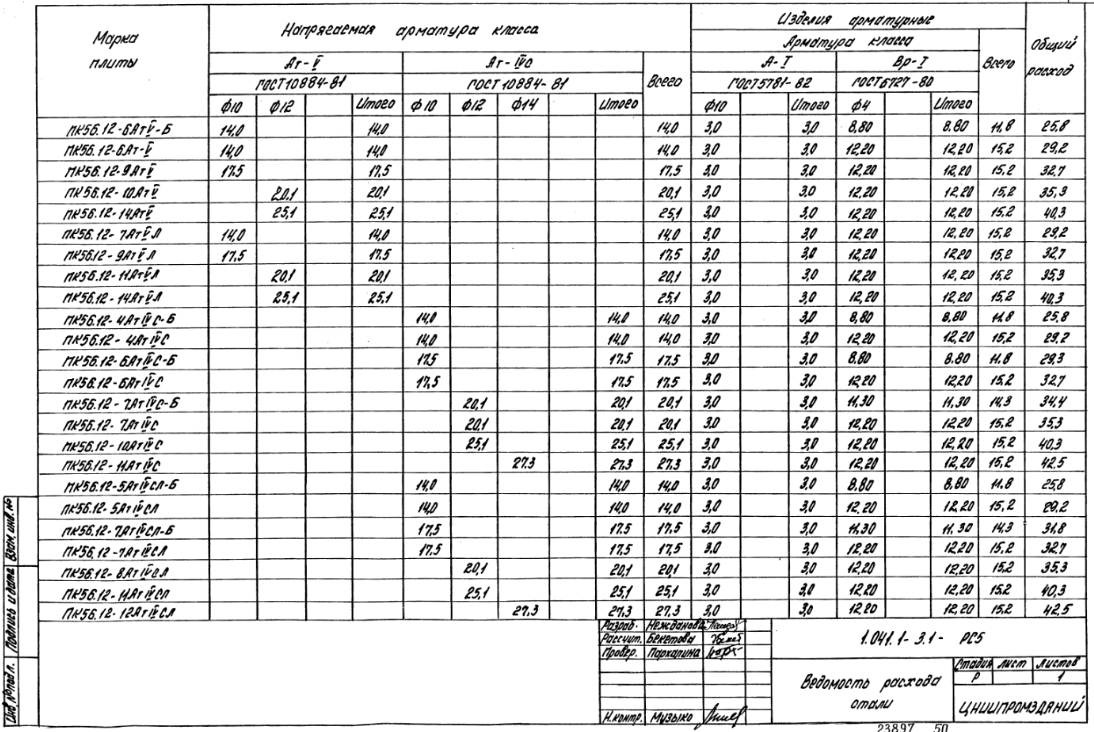 Марка плиты | Напрягаемая арматура класса | Изделия арматурные | Общий расход
Арматура класса | Всего
Ат-V | Ат-IVС | Всего | А-I | Вр-I
ГОСТ 10884-81 | ГОСТ 10884-81 | ГОСТ 5781-82 | ГОСТ 6727-80
Ф10 | Ф12 | Итого | Ф10 | Ф12 | Ф14 | Итого | Ф10 | Итого | Ф4 | Итого
ПК56.12-6АтV-Б | 14,0 | 14,0 | 14,0 | 3,0 | 3,0 | 8,80 | 8.80 | 11,8 | 25,8
ПК56.12-6Ат-V | 14,0 | 14,0 | 14,0 | 3,0 | 3,0 | 12,20 | 12,20 | 15,2 | 29,2
ПК56.12-9АтV | 17.5 | 17.5 | 17.5 | 3,0 | 3,0 | 12,20 | 12,20 | 15,2 | 32,7
ПК56.12-10АтV | 20,1 | 20,1 | 20,1 | 3,0 | 3.0 | 12,20 | 12,20 | 15,2 | 35,3
ПК56.12-14АтV | 25,1 | 25,1 | 25,1 | 3,0 | 3,0 | 12,20 | 12,20 | 15,2 | 40,3
ПК56.12-7АтVЛ | 14,0 | 14,0 | 14,0 | 3,0 | 3,0 | 12,20 | 12,20 | 15,2 | 29,2
ПК56.12-9АтVЛ | 17.5 | 17.5 | 17.5 | 3,0 | 3,0 | 12,20 | 12,20 | 15,2 | 32,7
ПК56.12-11АтVЛ | 20,1 | 20,1 | 20,1 | 3,0 | 3,0 | 12,20 | 12,20 | 15,2 | 35,3
ПК56.12-14АтVЛ | 25,1 | 25,1 | 25,1 | 3,0 | 3,0 | 12,20 | 12,20 | 15,2 | 40,3
ПК56.12-4АтIVС-Б | 14,0 | 14,0 | 14,0 | 3,0 | 3,0 | 8,80 | 8,80 | 11,8 | 25,8
ПК56.12-4АтIVС | 14,0 | 14,0 | 14,0 | 3,0 | 3,0 | 12,20 | 12,20 | 15,2 | 29,2
ПК56.12-6АтIVС-Б | 17,5 | 17.5 | 17.5 | 3,0 | 3,0 | 8.80 | 8.80 | 11.8 | 29,3
ПК56.12-6АтIVС | 17,5 | 17.5 | 17.5 | 3,0 | 3,0 | 12,20 | 12,20 | 15,2 | 32,7
ПК56.12-7АтIVС-Б | 20,1 | 20,1 | 20,1 | 3,0 | 3,0 | 11,30 | 11,30 | 14,3 | 34,4
ПК56.12-7АтIVС | 20,1 | 20,1 | 20,1 | 3,0 | 3,0 | 12,20 | 12,20 | 15,2 | 35,3
ПК56.12-10АтIVС | 25,1 | 25,1 | 25,1 | 3,0 | 3,0 | 12,20 | 12,20 | 15,2 | 40,3
ПК56.12-11АтIVС | 27.3 | 27.3 | 27.3 | 3,0 | 3,0 | 12,20 | 12,20 | 15,2 | 42,5
ПК56.12-5АтIVСЛ-Б | 14,0 | 14,0 | 14,0 | 3,0 | 3,0 | 8,80 | 8,80 | 11,8 | 25,8
ПК56.12-5АтIVСЛ | 14,0 | 14,0 | 14,0 | 3,0 | 3,0 | 12,20 | 12,20 | 15,2 | 29,2
ПК56.12-7АтIVСЛ-Б | 17.5 | 17.5 | 17.5 | 3,0 | 3,0 | 11,30 | 11,30 | 14,3 | 31,8
ПК56.12-7АтIVСЛ | 17.5 | 17.5 | 17.5 | 3,0 | 3,0 | 12,20 | 12,20 | 15,2 | 32,7
ПК56.12-8АтIVСЛ | 20,1 | 20,1 | 20,1 | 3,0 | 3,0 | 12,20 | 12,20 | 15,2 | 35,3
ПК56.12-11АтIVСЛ | 25,1 | 25,1 | 25,1 | 3,0 | 3,0 | 12,20 | 12,20 | 15,2 | 40,3
ПК56.12-12АтIVСЛ | 27.3 | 27.3 | 27.3 | 3,0 | 3,0 | 12,20 | 12,20 | 15,2 | 42,5
Разраб. Нежданова
Рассчит. Бекетова
Провер. Пархалина
Н.контр. Музыко
1.041.1-3.1- РС5
Ведомость расхода стали
Стадия | лист | листов
Р | 1
ЦНИИПРОМЗДАНИЙ
23897 50
Инв № подл. | Подпись и дата | Взам. инв. №